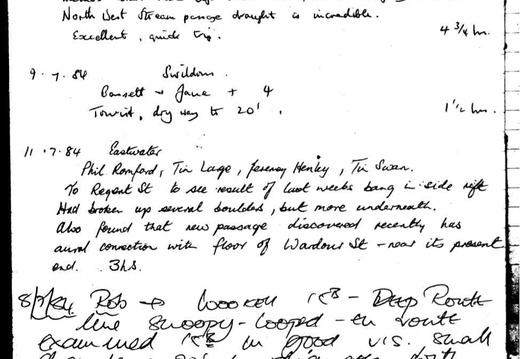 North West Stream passage draught is incredible.
Excellent, quick trip. 4 3/4 hrs.
9.7.84 Swildons.
Bassett + Jane + 4
Tourist, dry way to 20'. 1 1/2 hrs.
11.7.84 Eastwater
Phil Romford, Tim Large, Jeremy Henley, Tim Swan.
To Regent St to see result of last weeks bang in side rift
Had broken up several boulders, but more underneath.
Also found that new passage discovered recently has
aural connection with floor of Wardour St - near its present
end. 3hs.
8/7/84 Rob → Wookey - Deep Route
line snoopy-looped - en route
examined in good vis. small